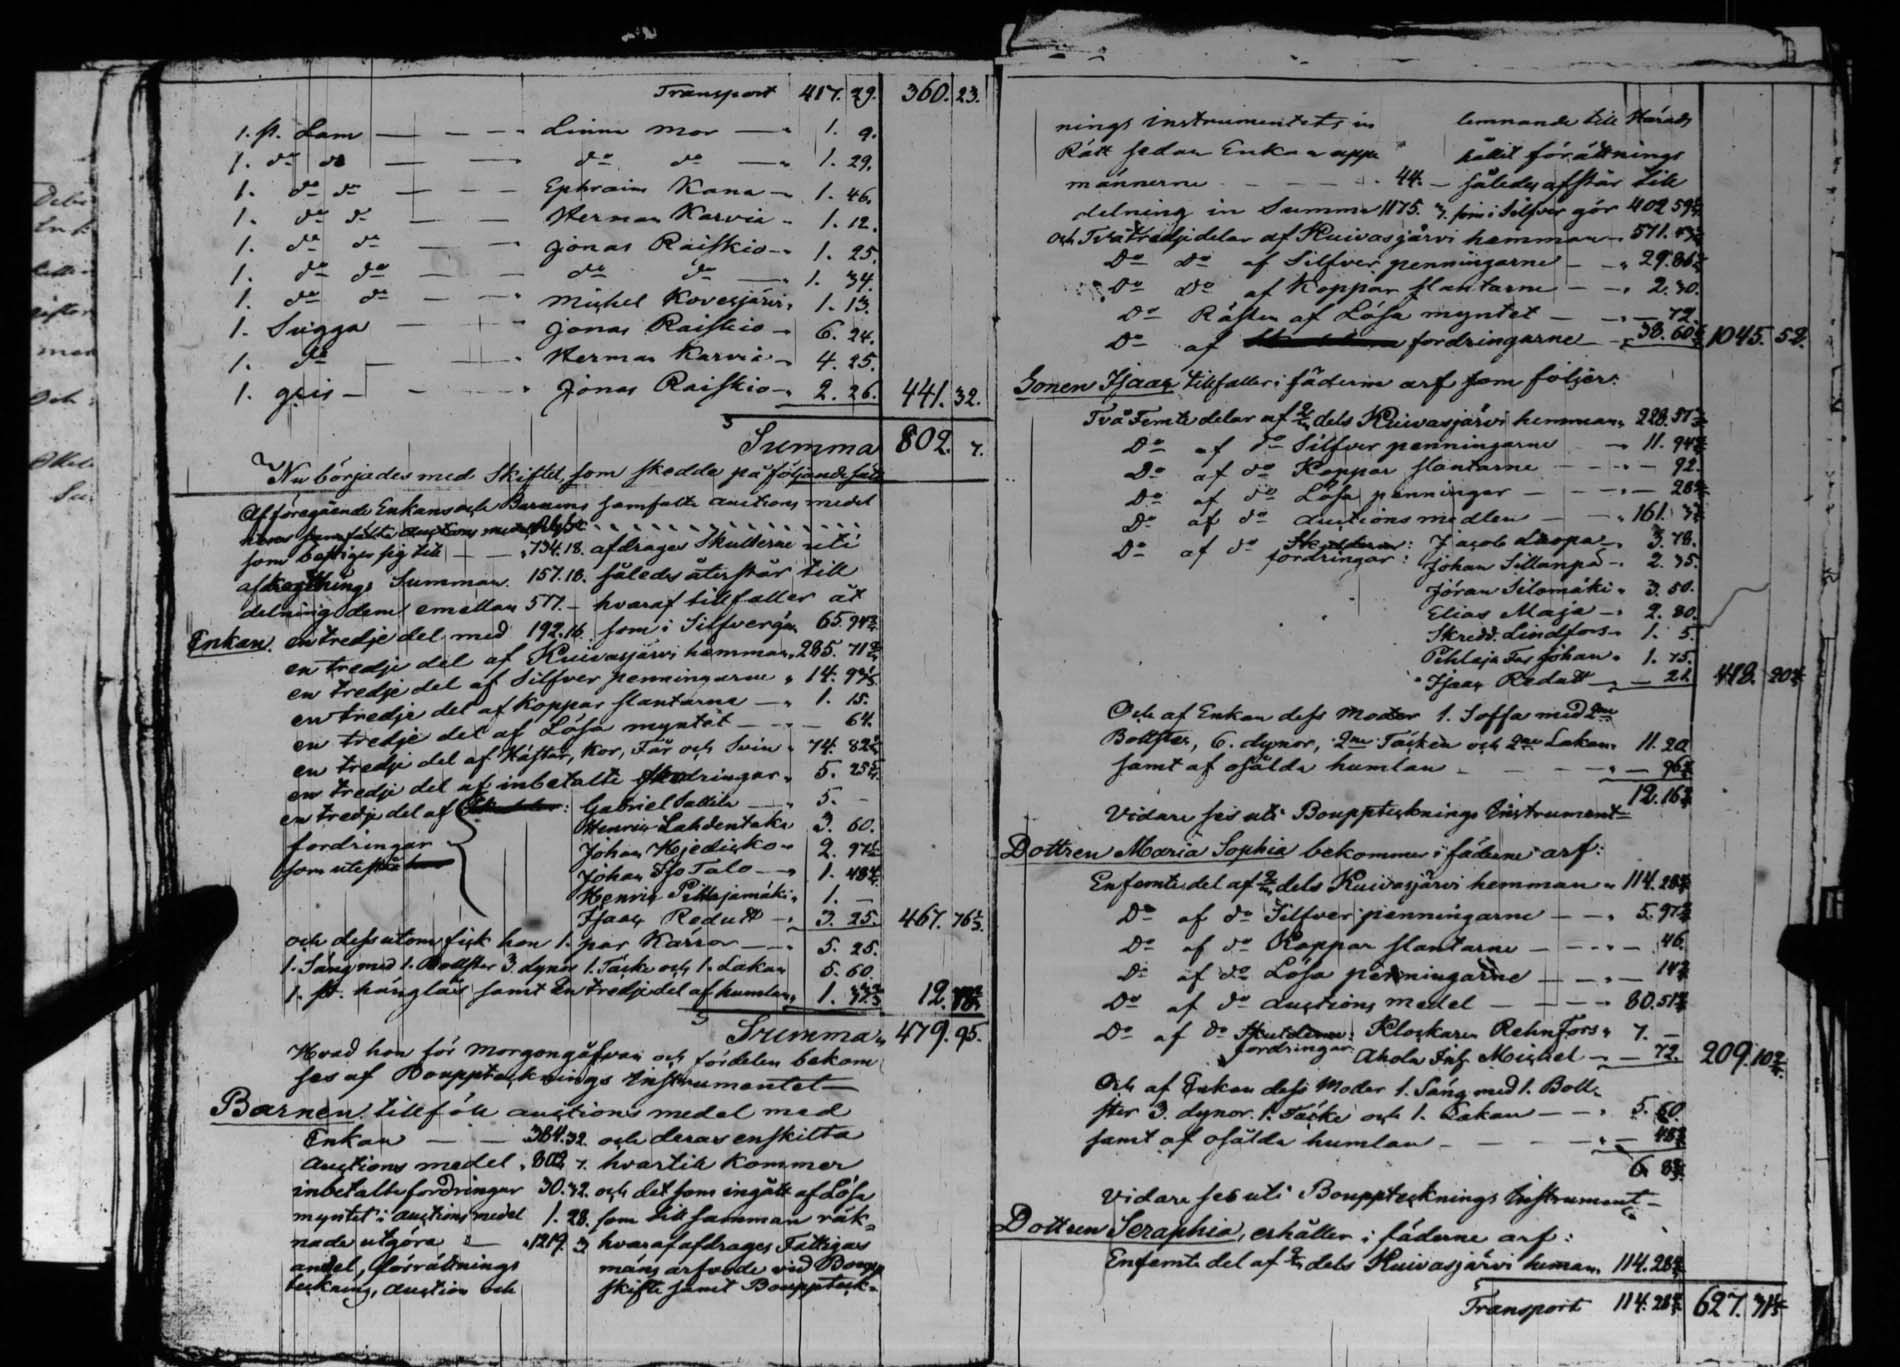 Transport 417. 29. 360. 23.
1. st. Lam — — — Linna Mor — 1. 9.
1. do do — — do do — 1. 29.
1. do do — — Ephraim Kana — 1. 46.
1. do do — — Herman Karvia - 1. 12.
1. do do — — Jonas Raiskio — 1. 25.
1. do do — — do do — 1. 34.
1. do do — — Michel Kovesjärvi 1. 13.
1. Sugga — — Jonas Raiskio — 6. 24.
1. do — — Herman Karvia — 4. 25.
1. gris — — Jonas Raiskio — 2. 26. 441. 32.
Summa 802. 7.
Nu börjades med Skiftet, som skedde på följande sätt
Af föregående Enkans och Barnens samfälta auctions medel
som bestiger sig till — 734. 18. afdrages Skulderne uti
Summan 157. 18. således återstår till
delning dem emellan 577. — hvaraf tillfaller åt
Enkan. en tredje del med 192. 16. som i Silfver gör 65. 94
en tredje del af Kuivasjärvi hemman 285. 71
en tredje del af Silfver penningarne 14. 93
en tredje del af Koppar slantarne — 1. 15.
en tredje del af Lösa myntet — 64.
en tredje del af Hästar, Kor, Får och Svin 74. 82
en tredje del af inbetalte fordringar 5. 25
en tredje del af Gabriel — 5. —
fordringar Henric Lahdentaka 3. 60.
Johan Hjedicko 2. 97
som utestå Johan Iso Talo 1. 48
Henric Pihlajamäki 1. —
Isaac Redutt — 3. 25. 467. 76
och dessutom fick hon 1. par Kärror — 5. 25.
1. Säng med 1. Bollster 3. dynor 1. Täcke och 1. Lakan 5. 60.
1. st. hänglås samt En tredje del af humlan 1. 12.
Summa 479. 95.
Hvad hon för Morgongåfvan och fördelen bekom
ses af Boupptecknings Instrumentet —
Barnen tillföll auctions medel med
Enkan — — 384. 32 och deras enskilta
Auctions medel 802 7. hvartill kommer
inbetalte fordringar 30. 32. och det som ingått af Lösa
myntet i auctions medel 1. 28. som till samman räk-
nade utgöra — 1219. 3 hvaraf afdrages Fattigas
andel, förrättnings mäns arfvode vid Boupp
teckning, auction och skifte samt Bouppteck-
nings instrumentets in lemnande till Härads
Rätt sedan Enkan upp hållit förättnings
männerne — — 44. — således afstår till
delning in Summa 1175. 3. som i Silfver gör 402 59
och Två tredje delar af Kuivasjärvi hemman 571. 43
Do Do af Silfver penningarne — 29. 86
Do Do af Koppar slantarne — 2. 30.
Do Råsten af Lösa myntet — — 72.
Do af fordringarne — 38. 60 1045. 52.
Sonen Isaac tillfaller i fäderne arf som följer:
Två Femte delar af 2/3 dels Kuivasjärvi hemman 228. 57
Do af do Silfver penningarne — 11. 94
Do af do Koppar slantarne — — 92.
Do af do Lösa penningar — — 28
Do af do auctions medlen — 161. 3
Do af do Skulderne: Jacob Luopa 3. 78.
fordringar: Johan Sillanpä — 2. 35.
Jöran Silomäki 3. 50.
Elias Maja — 2. 80.
Skredd. Lindfors 1. 5
Pihlaja Johan 1. 75.
Isaac Redutt — 21. 418. 20
Och af Enkan dess Moder 1. Soffa med 2ne
Bollster, 6. dynor, 2ne Täcken och 2ne Lakan 11. 20
samt af osålda humlan — — — 96
12. 16
Vidare ses uti Bouppteknings Instrument —
Dottren Maria Sophia bekommer i fäderne arf:
En femte del af 2/3 dels Kuivasjärvi hemman 114. 28
Do af do Silfver penningarne — 5. 97
Do af do Koppar slantarne — — 46.
Do af do Lösa penningarne — — 14
Do af do auctions medel — — 80. 51
Do af do Skulderne: Klockaren Rehnfors 7. —
fordringar Ahola Michel — 72. 209. 10
Och af Enkan dess Moder 1. Säng med 1. Boll-
ster 3. dynor. 1. Täcke och 1. Lakan — 5. 60.
samt af osålda humlan — — — 48
6. 8
Vidare ses uti Bouppteknings Instrument —
Dottren Seraphia, erhåller i fäderne arf:
En femte del af 2/3 dels Kuivasjärvi heman 114. 28
Transport 114. 28 627. 31